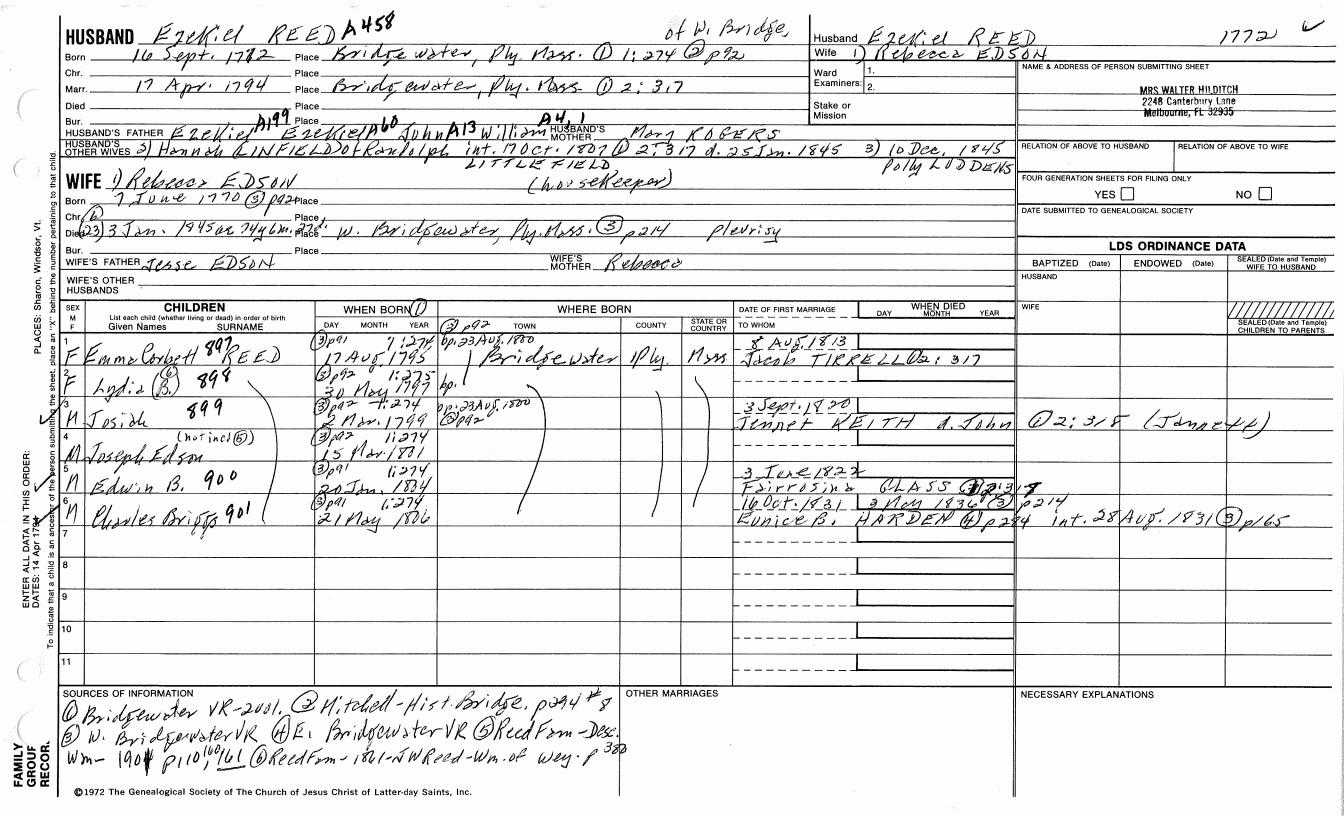 HUSBAND Ezekiel REED A458 of W. Bridge,
Born 16 Sept. 1772 Place Bridgewater, Ply. Mass. ① 1:274 ② p92
Chr. Place
Marr. 17 Apr. 1794 Place Bridgewater, Ply. Mass ① 2:317
Died Place
Bur. Place
HUSBAND'S FATHER Ezekiel A199 Ezekiel A60 John A13 William A4,1 HUSBAND'S MOTHER Mary ROGERS
HUSBAND'S OTHER WIVES 2) Hannah LINFIELD of Randolph int. 17 Oct. 1807 ① 2:317 d. 25 Jan. 1845 3) 10 Dec. 1845
LITTLEFIELD Polly LUDDENS
WIFE 1) Rebecca EDSON (housekeeper)
Born 7 June 1770 ③ p92 Place
Chr. ⑥ Place
Died (23) 3 Jan. 1845 ae 74y 6m. 27d. Place W. Bridgewater, Ply. Mass. ③ p214 plevrisy
Bur. Place
WIFE'S FATHER Jesse EDSON WIFE'S MOTHER Rebecca
WIFE'S OTHER HUSBANDS
Husband Ezekiel REED 1772
Wife 1) Rebecca EDSON
Ward Examiners: 1. 2.
Stake or Mission
NAME & ADDRESS OF PERSON SUBMITTING SHEET
MRS WALTER HILDITCH
2248 Canterbury Lane
Melbourne, FL 32935
RELATION OF ABOVE TO HUSBAND RELATION OF ABOVE TO WIFE
FOUR GENERATION SHEETS FOR FILING ONLY
YES NO
DATE SUBMITTED TO GENEALOGICAL SOCIETY
LDS ORDINANCE DATA
BAPTIZED (Date) ENDOWED (Date) SEALED (Date and Temple) WIFE TO HUSBAND
HUSBAND
WIFE
SEALED (Date and Temple) CHILDREN TO PARENTS
SEX M F CHILDREN WHEN BORN ① WHERE BORN DATE OF FIRST MARRIAGE WHEN DIED
List each child (whether living or dead) in order of birth
Given Names SURNAME DAY MONTH YEAR ③ p92 TOWN COUNTY STATE OR COUNTRY TO WHOM DAY MONTH YEAR
1 897 ③ p91 1:274 bp. 23 Aug. 1800 8 Aug. 1813
F Emma Corbett REED 17 Aug. 1795 Bridgewater Ply. Mass Jacob TIRRELL ① 2:317
2 ⑥ ③ p92 1:275
F Lydia (B.) 898 30 May 1797 bp.
3 899 ③ p92 1:274 bp. 23 Aug. 1800 3 Sept. 1820
M Josiah 2 Mar. 1799 ③ p92 Jennet KEITH d. John ① 2:318 (Jannett)
4 (not incl ⑤) ③ p92 1:274
M Joseph Edson 15 Mar. 1801
5 ③ p91 1:274 3 June 1822
M Edwin B. 900 20 Jan. 1804 Fairrosina GLASS
6 ③ p91 1:274 16 Oct. 1831 3 May 1836 ③ p214
M Charles Briggs 901 21 May 1806 Eunice B. HARDEN ④ p294 int. 28 Aug. 1831 ③ p165
7
8
9
10
11
SOURCES OF INFORMATION
① Bridgewater VR-2001. ② Mitchell-Hist. Bridge. p294 #8
③ W. Bridgewater VR ④ E. Bridgewater VR ⑤ Reed Fam-Desc.
Wm- 1901 p110, 160, 161 ⑥ Reed Fam-1861-JW Reed-Wm. of Wey. p 380
OTHER MARRIAGES
NECESSARY EXPLANATIONS
©1972 The Genealogical Society of The Church of Jesus Christ of Latter-day Saints, Inc.
FAMILY GROUP RECOR.
ENTER ALL DATA IN THIS ORDER:
DATES: 14 Apr 173
PLACES: Sharon, Windsor, Vt.
To indicate that a child is an ancestor of the person submitting the sheet, place an "X" behind the number pertaining to that child.